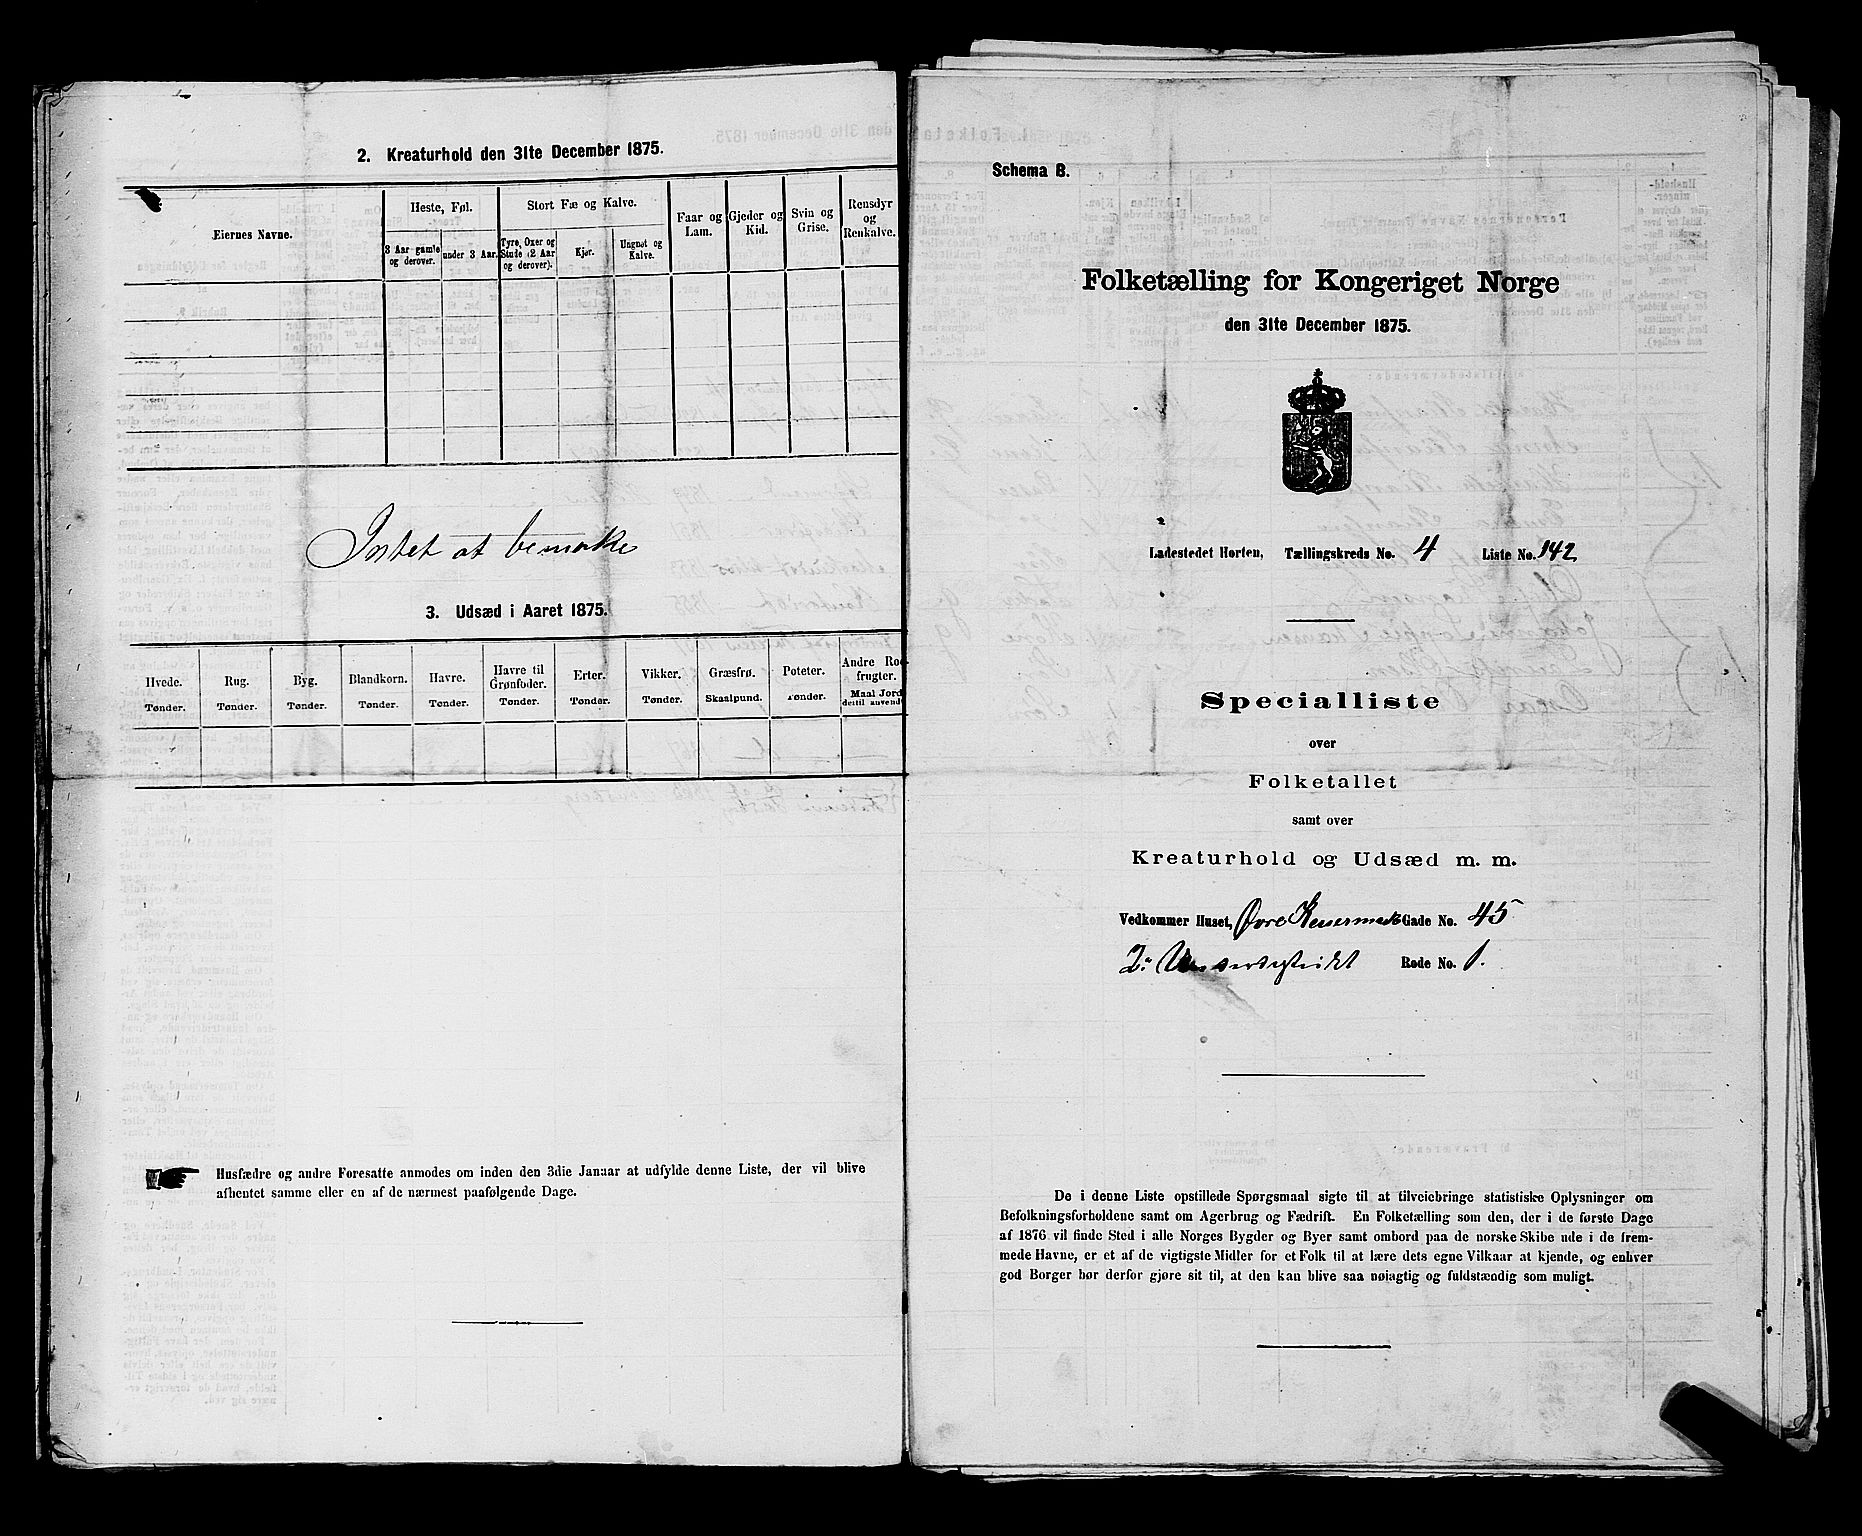 2. Kreaturhold den 31te December 1875.
Eiernes Navne.
Heste, Føl.
Stort Fæ og Kalve.
Faar og Lam.
Gjeder og Kid.
Svin og Grise.
Rensdyr og Renkalve.
3 Aar gamle og derover.
under 3 Aar.
Tyre, Oxer og Stude (2 Aar og derover).
Kjør.
Ungnøt og Kalve.
Intet at bemærke
3. Udsæd i Aaret 1875.
Hvede. Tønder.
Rug. Tønder.
Byg. Tønder.
Blandkorn. Tønder.
Havre. Tønder.
Havre til Grønfoder. Tønder.
Erter. Tønder.
Vikker. Tønder.
Græsfrø. Skaalpund.
Poteter. Tønder.
Andre Rodfrugter. Maal Jord dertil anvendt
Husfædre og andre Foresatte anmodes om inden den 3die Januar at udfylde denne Liste, der vil blive
afhentet samme eller en af de nærmest paafølgende Dage.
Schema B.
Folketælling for Kongeriget Norge
den 31te December 1875.
Ladestedet Horten, Tællingskreds No. 4 Liste No. 142
Specialliste
over
Folketallet
samt over
Kreaturhold og Udsæd m. m.
Vedkommer Huset, Øvre Keisermark Gade No. 45
2. Underdistrikt Rode No. 1.
De i denne Liste opstillede Spørgsmaal sigte til at tilveiebringe statistiske Oplysninger om
Befolkningsforholdene samt om Agerbrug og Fædrift. En Folketælling som den, der i de første Dage
af 1876 vil finde Sted i alle Norges Bygder og Byer samt ombord paa de norske Skibe ude i de frem-
mede Havne, er et af de vigtigste Midler for et Folk til at lære dets egne Vilkaar at kjende, og enhver
god Borger bør derfor gjøre sit til, at den kan blive saa nøiagtig og fuldstændig som muligt.